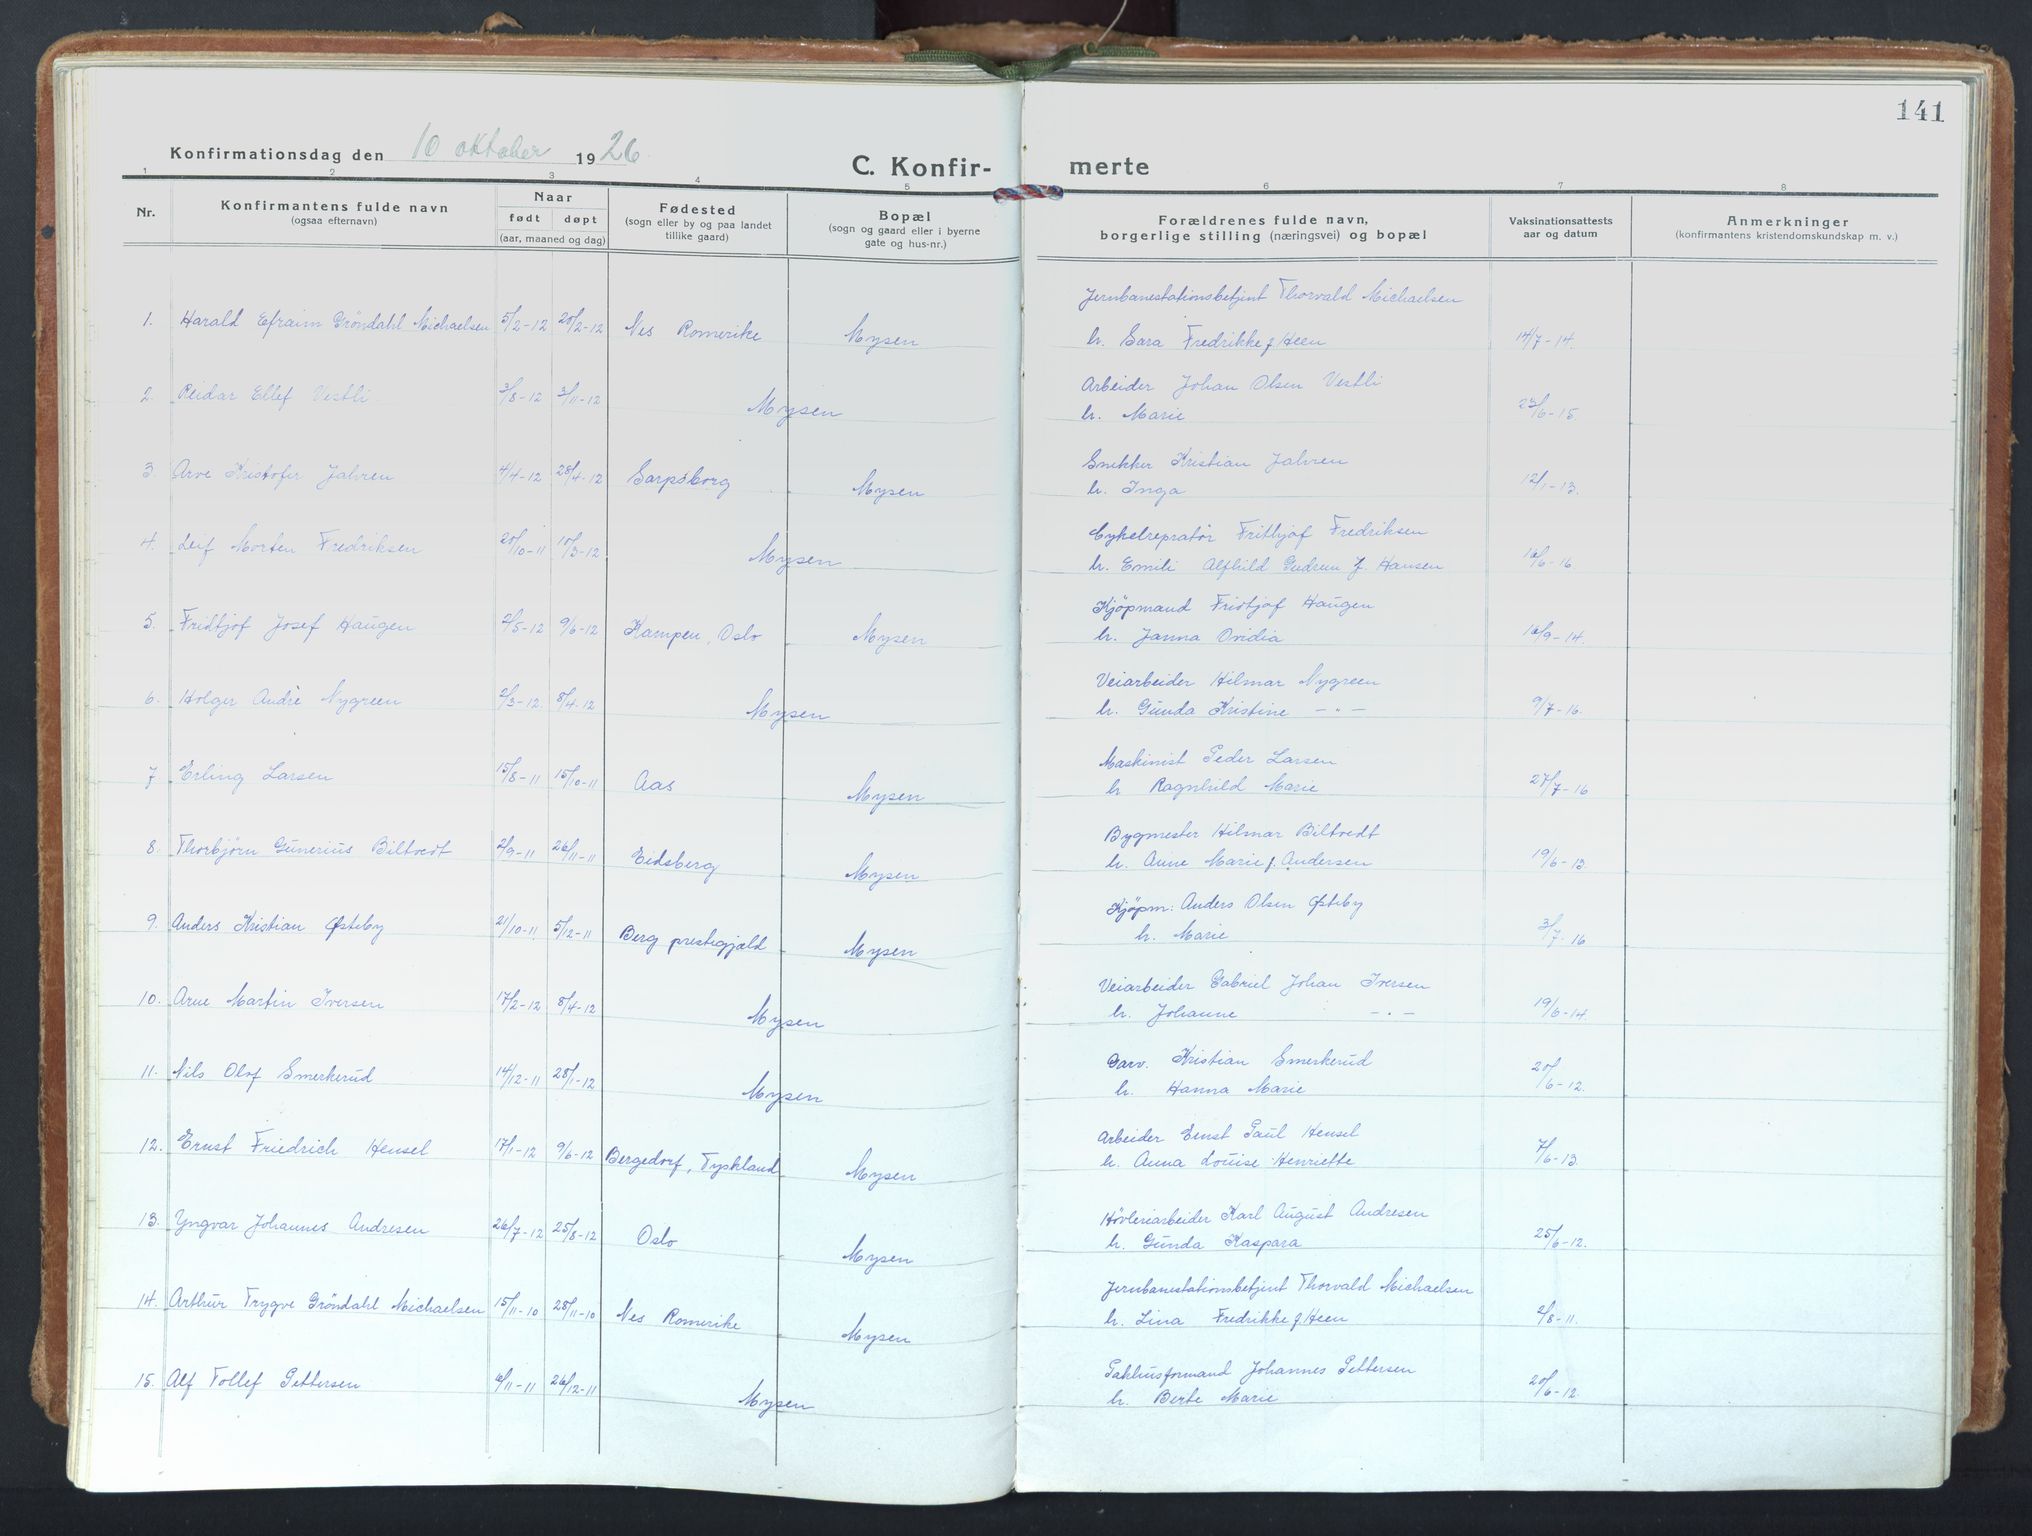 141
Konfirmationsdag den 10 oktober 1926
C. Konfir- merte
1 2 3 4 5 6 7 8
Nr. | Konfirmantens fulde navn (ogsaa efternavn) | Naar født døpt (aar, maaned og dag) | Fødested (sogn eller by og paa landet tillike gaard) | Bopæl (sogn og gaard eller i byerne gate og hus-nr.) | Forældrenes fulde navn, borgerlige stilling (næringsvei) og bopæl | Vaksinationsattests aar og datum | Anmerkninger (konfirmantens kristendomskundskap m. v.)
Jernbanestationsbetjent Thorvald Michaelsen
1. Harald Efraim Gröndahl Michaelsen 5/2-12 20/2-12 Nes Romerike Mysen h. Sara Fredrikke f Heen 14/7-14.
Arbeider Johan Olsen Vestli
2. Reidar Ellef Vestli 3/8-12 3/11-12 Mysen h. Marie 23/6-15
Snekker Kristian Jahren
3. Arve Kristofer Jahren 4/4-12 28/4-12 Sarpsborg Mysen h. Inga 12/1-13.
Cykelrepratör Frithjof Fredriksen
4. Leif Morten Fredriksen 20/10-11 10/3-12 Mysen h. Emili Alfhild Gudrun f. Hansen 16/6-16
Kjöpmand Fridtjof Haugen
5. Fridtjof Josef Haugen 2/5-12 9/6-12 Kampen, Oslo Mysen h. Janna Ovidia 16/9-14.
Veiarbeider Hilmar Nygreen
6. Holger Andrè Nygreen 2/3-12. 8/4-12 Mysen h. Gunda Kristine -"- 9/7-16.
Maskinist Peder Larsen
7 Erling Larsen 15/8-11 15/10-11 Aas Mysen h Ragnhild Marie 27/7-16
Bygmester Hilmar Biltvedt
8. Thorbjörn Gunerius Biltvedt 2/9-11 26/11-11 Eidsberg Mysen h. Anne Marie f. Andersen 19/6-13.
Kjöpm: Anders Olsen Østeby
9. Anders Kristian Østeby 21/10-11. 5/12-11 Berg prestegjæld Mysen h. Marie 3/7-16
Veiarbeider Gabriel Johan Iversen
10. Arne Martin Iversen 17/2-12 8/4-12 Mysen h. Johanne -"- 19/6-14.
Garv. Kristian Smerkerud
11. Nils Olof Smerkerud 14/12-11 28/1-12 Mysen h. Hanna Marie 20/6-12.
Arbeider Ernst Paul Hensel
12. Ernst Friedrich Hensel 17/1-12 9/6-12 Bergedorf, Tyskland Mysen h. Anna Louise Henriette 7/6-13
Hövleriarbeider Karl August Andresen
13. Yngvar Johannes Andresen 26/7-12 25/8-12 Oslo Mysen h. Gunda Kaspara 25/6-12.
Jernbanestationsbetjent Thorvald Michaelsen
14. Arthur Trygve Gröndahl Michaelsen 15/11-10 28/11-10 Nes Romerike Mysen h. Lina Fredrikke f Heen 2/8-11.
Pakhusformand Johannes Pettersen
15. Alf Tollef Pettersen 6/11-11 26/12-11 Mysen h. Berte Marie 20/6-12.